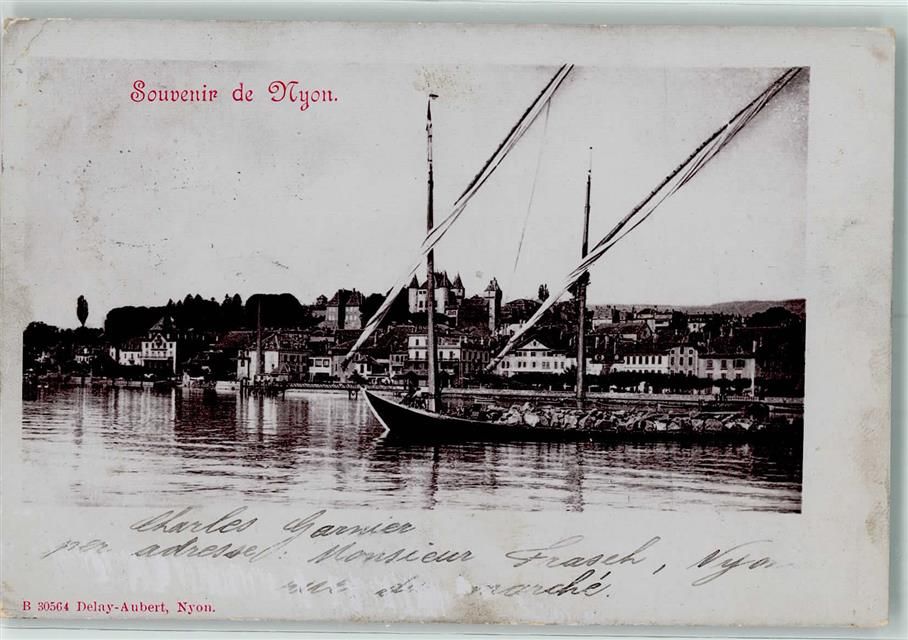 Souvenir de Nyon.
Charles Garnier
per adresse: Monsieur Frasch, Nyon
rue du marché.
B 30564 Delay-Aubert, Nyon.